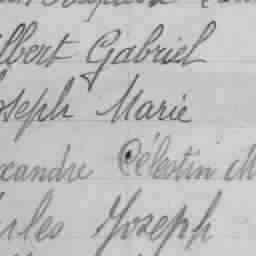 lbert Gabriel
oseph Marie
xandre Célestin M
rles Joseph